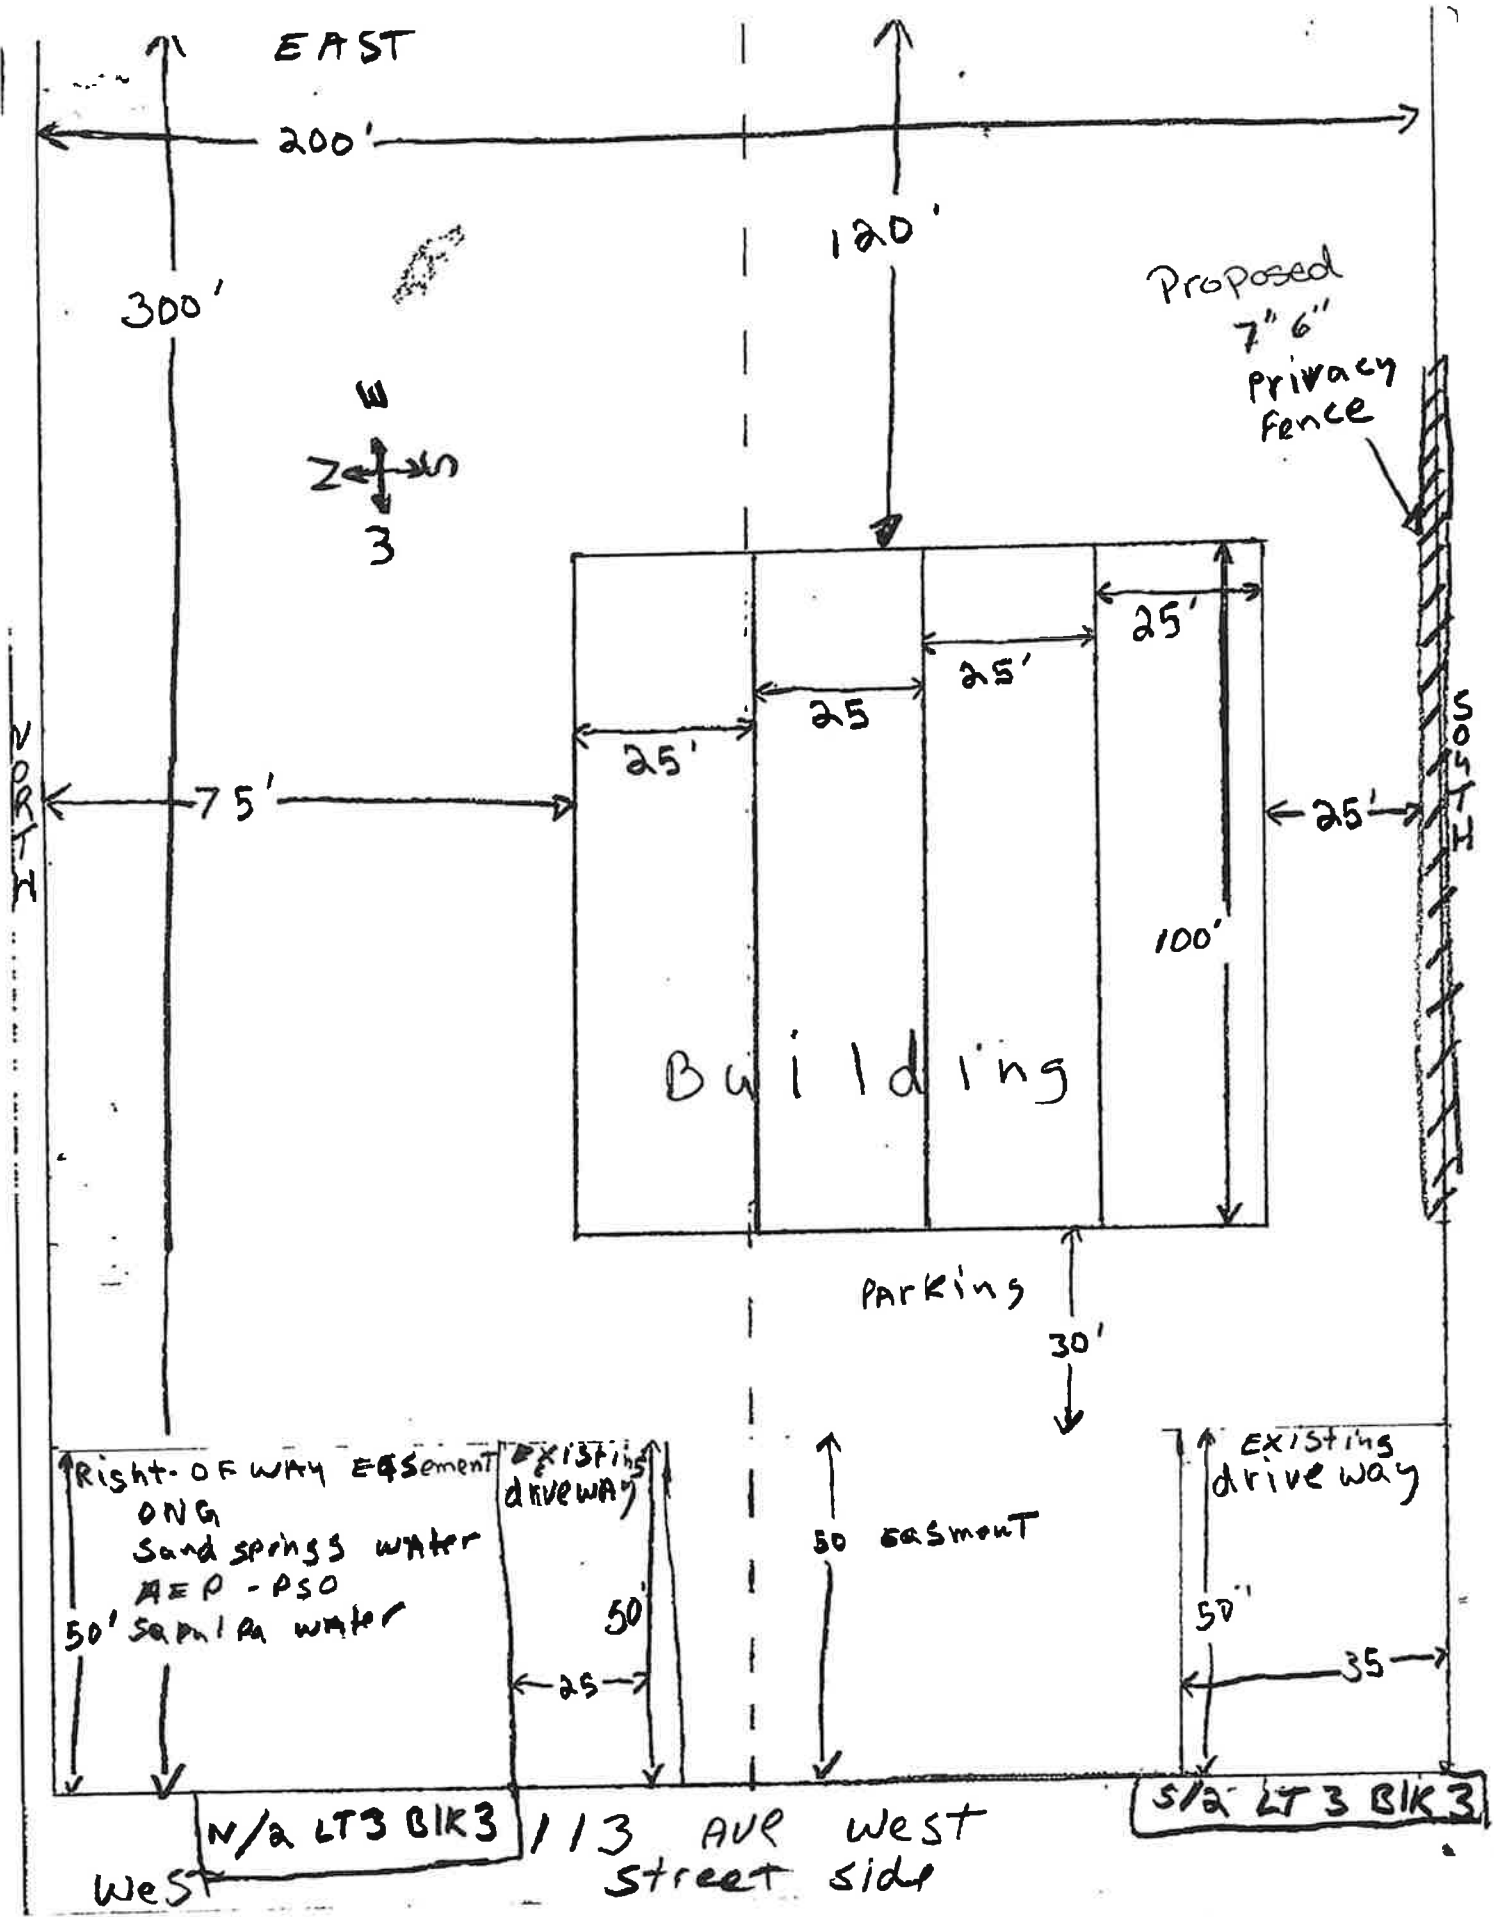 EAST
200'
120'
300'
Proposed
7" 6"
Privacy
Fence
E
N S
W
25'
25'
25
25'
NORTH
75'
25'
SOUTH
100'
Building
Parking
30'
Right-OF WAY EASement
ONG
Sand springs water
AEP - PSO
50' Sapulpa water
Existing
driveway
50'
25
50 easment
Existing
drive way
50"
35
N/2 LT3 Blk3
113 Ave West
S/2 LT 3 Blk 3
West
Street side